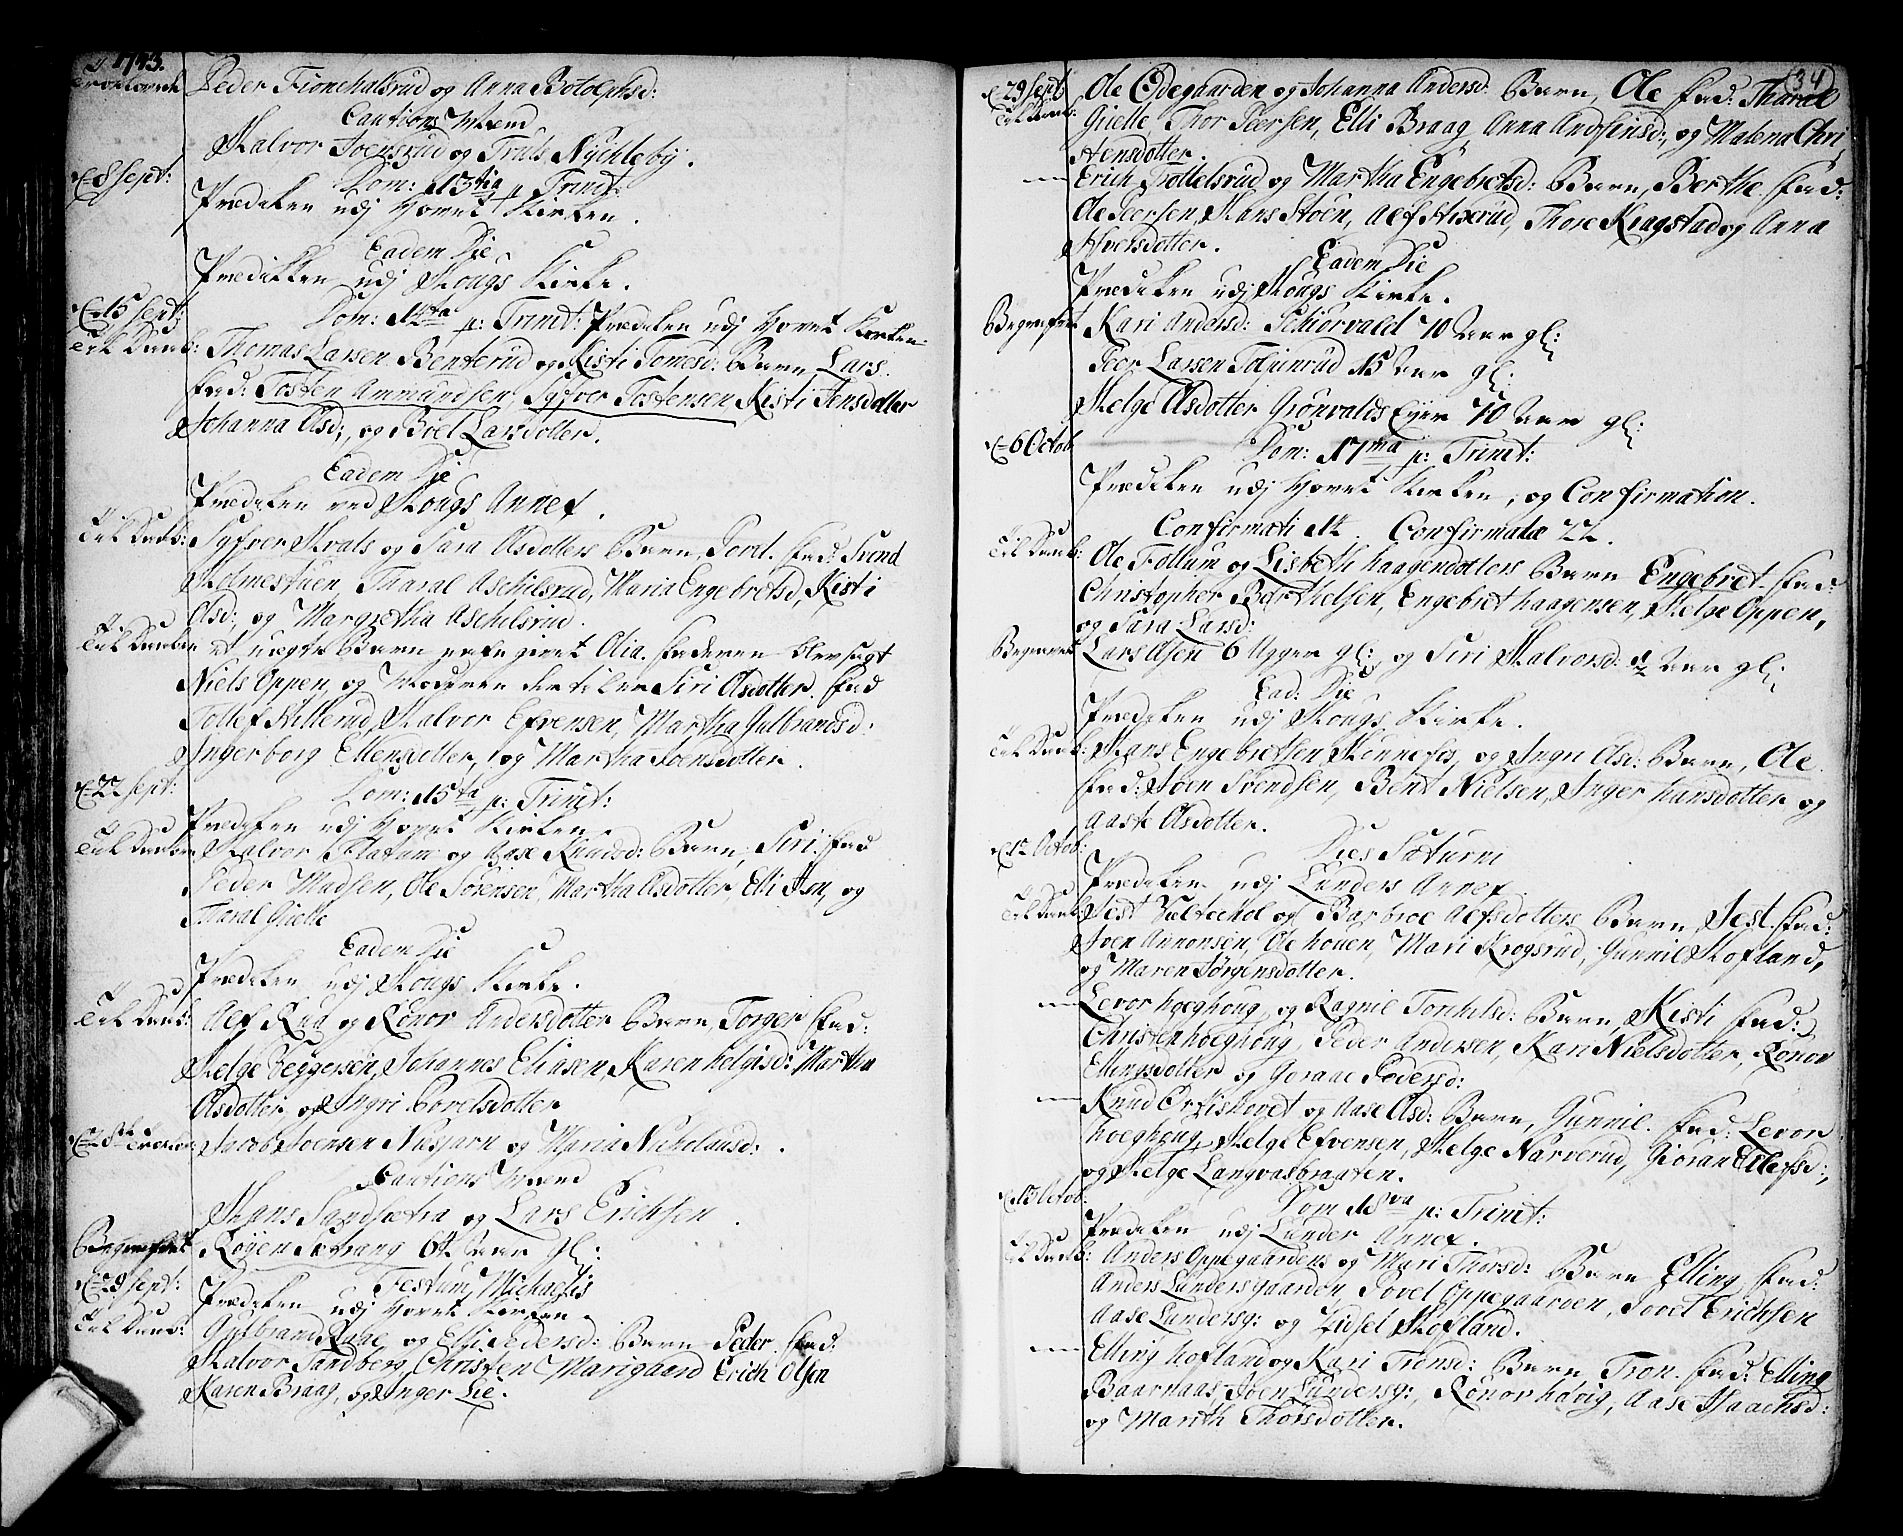 1743.
Trolovede Peder Tronehalsrud og Anna Botolphsd:
Cautions Mænd
Halvor Joensrud og Truls Nÿchlebÿ.
d. 8 Sept: Dom: 13tia p Trinit:
Prædiken udj Hovet Kirken.
Eadem Die
Prædikken udj Hougs Kirke.
d. 15 Sept: Dom: 14ta p: Trinit: Prædiken udj Hovet Kirken
Til Daab: Thomas Larsen Benterud og Kisti Tomesd: Barn Lars.
fad: Tosten Ammundsen, Syfver Tostensen Kisti Jensdotter
Johanna Olsd:, og Boel Larsdotter.
Eadem Die
Prædiken ved Hougs Annex.
Til Daab: Syfver Hvals og Sara Olsdotters Barn, Pord. fad: Svend
Holmestuen, Tharal Aschilsrud, Maria Engebretsd, Kisti
Olsd:, og Margretha Aschilsrud.
Til Daaben et uægte Barn nafngivet Olia. faderen blev sagt
Niels Oppen, og Moderen dertil er Siri Olsdotter. fad
Tollef Hillerud, Halvor Efvensen, Martha Gulbrandsd:
Ingerborg Ellensdotter, og Martha Joensdotter.
d. 22 Sept: Dom: 15ta p: Trinit:
Prædiken udj Hovet Kirken.
Til Daaben Halvor Flatum og Aase Knudsd: Barn, Siri. fad
Peder Madsen, Ole Sørensen, Martha Olsdotter, Elli Asn, og
Tharal Gielle
Eadem Die
Prædiken udj Hougs Kirke.
Til Daab: Alf Rud og Rønor Andersdotter Barn, Torger fad:
Helge Beggersen, Johannes Eliasen, Karen Helgisd: Martha
Olsdotter og Ingri Povelsdotter
Jacob Joensen Nusjarn og Maria Nicholausd:.
Cautions Mænd
Hans Sandsætra og Lars Erichsen.
Begrafvet Røyen Sætrang 64 Aar gl:
d. 29 Sept: Festum Michaelis
Prædiken udj Hovet Kirken.
Til Daab: Gulbrand Rube og Elli Pedersd: Barn Peder. fad:
Halvor Sandberg, Christen Marigaard Erich Olsen
Karen Braag, og Inger Lie.
34
d. 29 Sept Ole Ødegaarden og Johanna Andersd: Barn, Ole fad: Tharal
Til Daab: Gielle, Thor Peersen, Elli Braag, Anna Andfinsd:, og Malena Chri
stensdotter.
Erich Trøttelsrud og Martha Engebretsd: Barn, Berthe. fad:
Ole Peersen, Hans Stoen, Alf Hixerud, Thore Kragstad og Anna
Hversdotter.
Eadem Die
Prædiken udj Hougs Kirke.
Begrafvet Kari Andersd: Schiørvald 70 Aar gl:
Peer Larsen Tolpinrud 15 Aar gl:
Helge Olsdotter Grønvalds Eyer 70 Aar gl:
d. 6 Octob Dom: 17ma p: Trinit:
Prædiken udj Hovet Kirken, og Confirmation.
Confirmati 14. Confirmatæ 22.
Til Daab: Ole Follum og Lisbeth Haagendotters Barn Engebret. fad:
Christopher Berthelsen, Engebret Haagensen, Helge Oppen,
og Sara Larsd:
Begravet Lars Olsen 6 Uger gl:, og Siri Halvorsd: 1/2 Aar gl:
Ead: Die
Prædiken udj Hougs Kirke.
Til Daab: Hans Engebretsen Hønnefos, og Ingri Olsd: Barn, Ole.
fad: Joen Svendsen, Bent Nielsen, Inger Hansdotter og
Aaste Olsdotter.
d. 12 Octob: Dies Saturni
Prædiken udj Lunders Annex.
Til Daab Jest Vælteckol og Barbroe Alfsdotters Barn, Jest. fad:
Joen Amonsen, Ole Houen, Mari Krogsrud, Gunnil Hofland,
og Maren Jørgensdotter.
Levor Hoeghoug, og Ragnil Tonhilsd: Barn, Kisti fad:
Christen Hoeghoug, Peder Andersen, Kari Nielsdotter, Rønor
Ellingsdotter og Goraae Pedersd:
Knud Ørtishovet og Aase Olsd: Barn, Gunnil. fad: Levor
Hoeghoug, Helge Efvensen, Helge Narverud, Gioran Ellefsd:,
og Helge Langvasbraaten.
d. 13 Octob: Dom 18va p: Trinit:
Prædiken udj Lunder Annex.
Til Daab: Anders Oppegaardens og Mari Thorsd: Barn Elling. fad:
Anders Lundersgaarden, Povel Oppegaarden, Povel Erichsen
Aase Lundersg: og Zidsel Hofland.
Elling Hofland og Kari Tronsd: Barn, Tron. fad: Elling
Baarnaas, Joen Lundersg:, Rønor Hovig, Aase Isaachsd:
og Marith Thorsdotter.